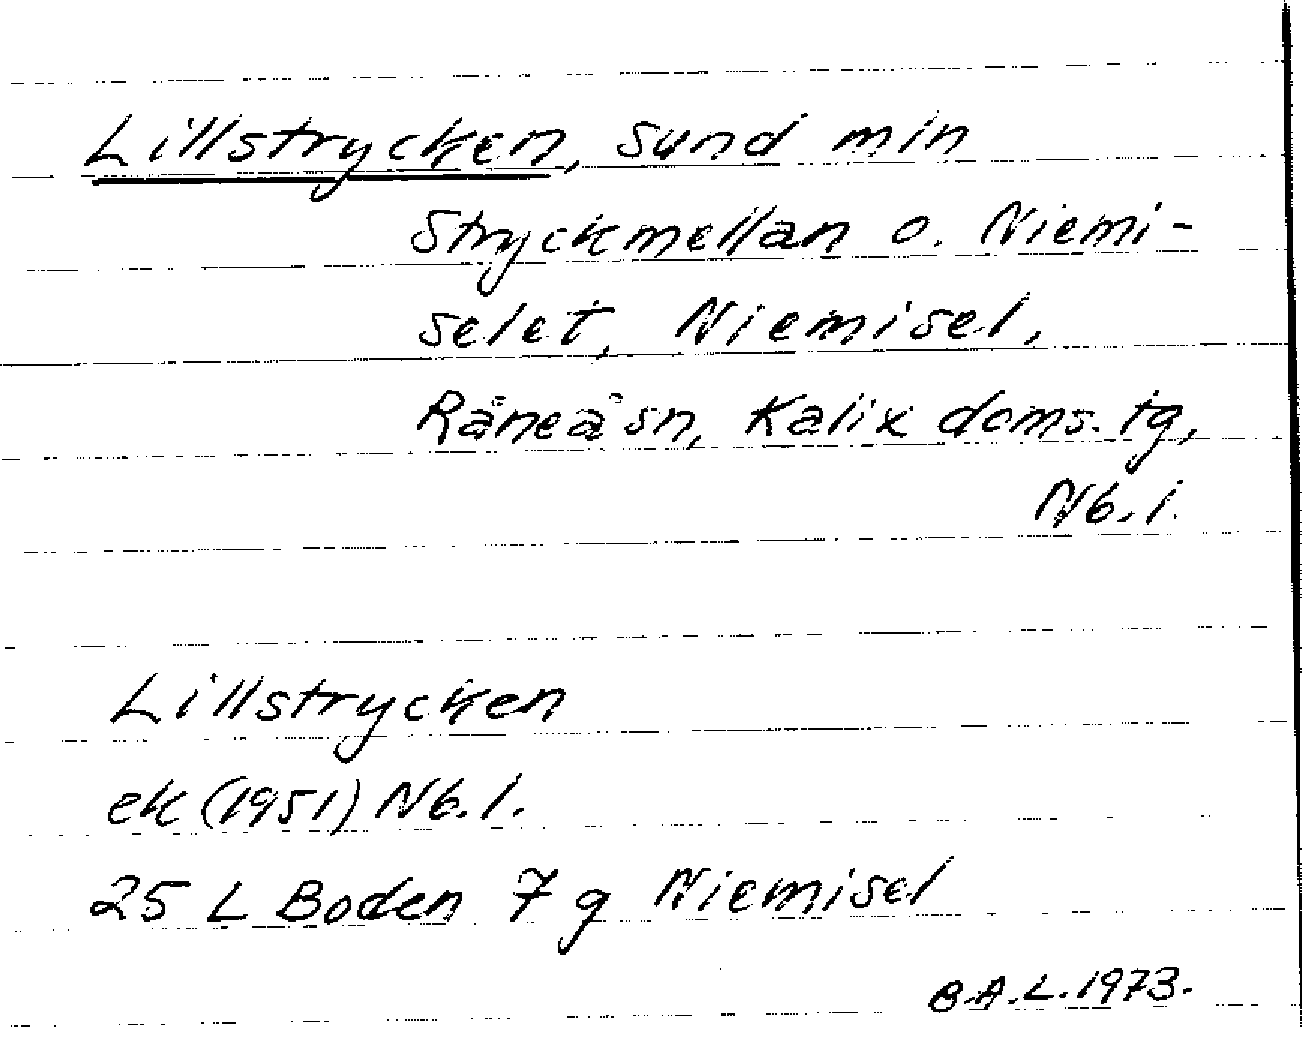 Lillstrycken, sund m/n
Stryckmellan o. Niemi-
selet, Niemisel,
Råneå sn, Kalix doms. tg,
Nb. l.
Lillstrycken
ek (1951) Nb. l.
25 L Boden 7 g Niemisel
B.A.L. 1973.